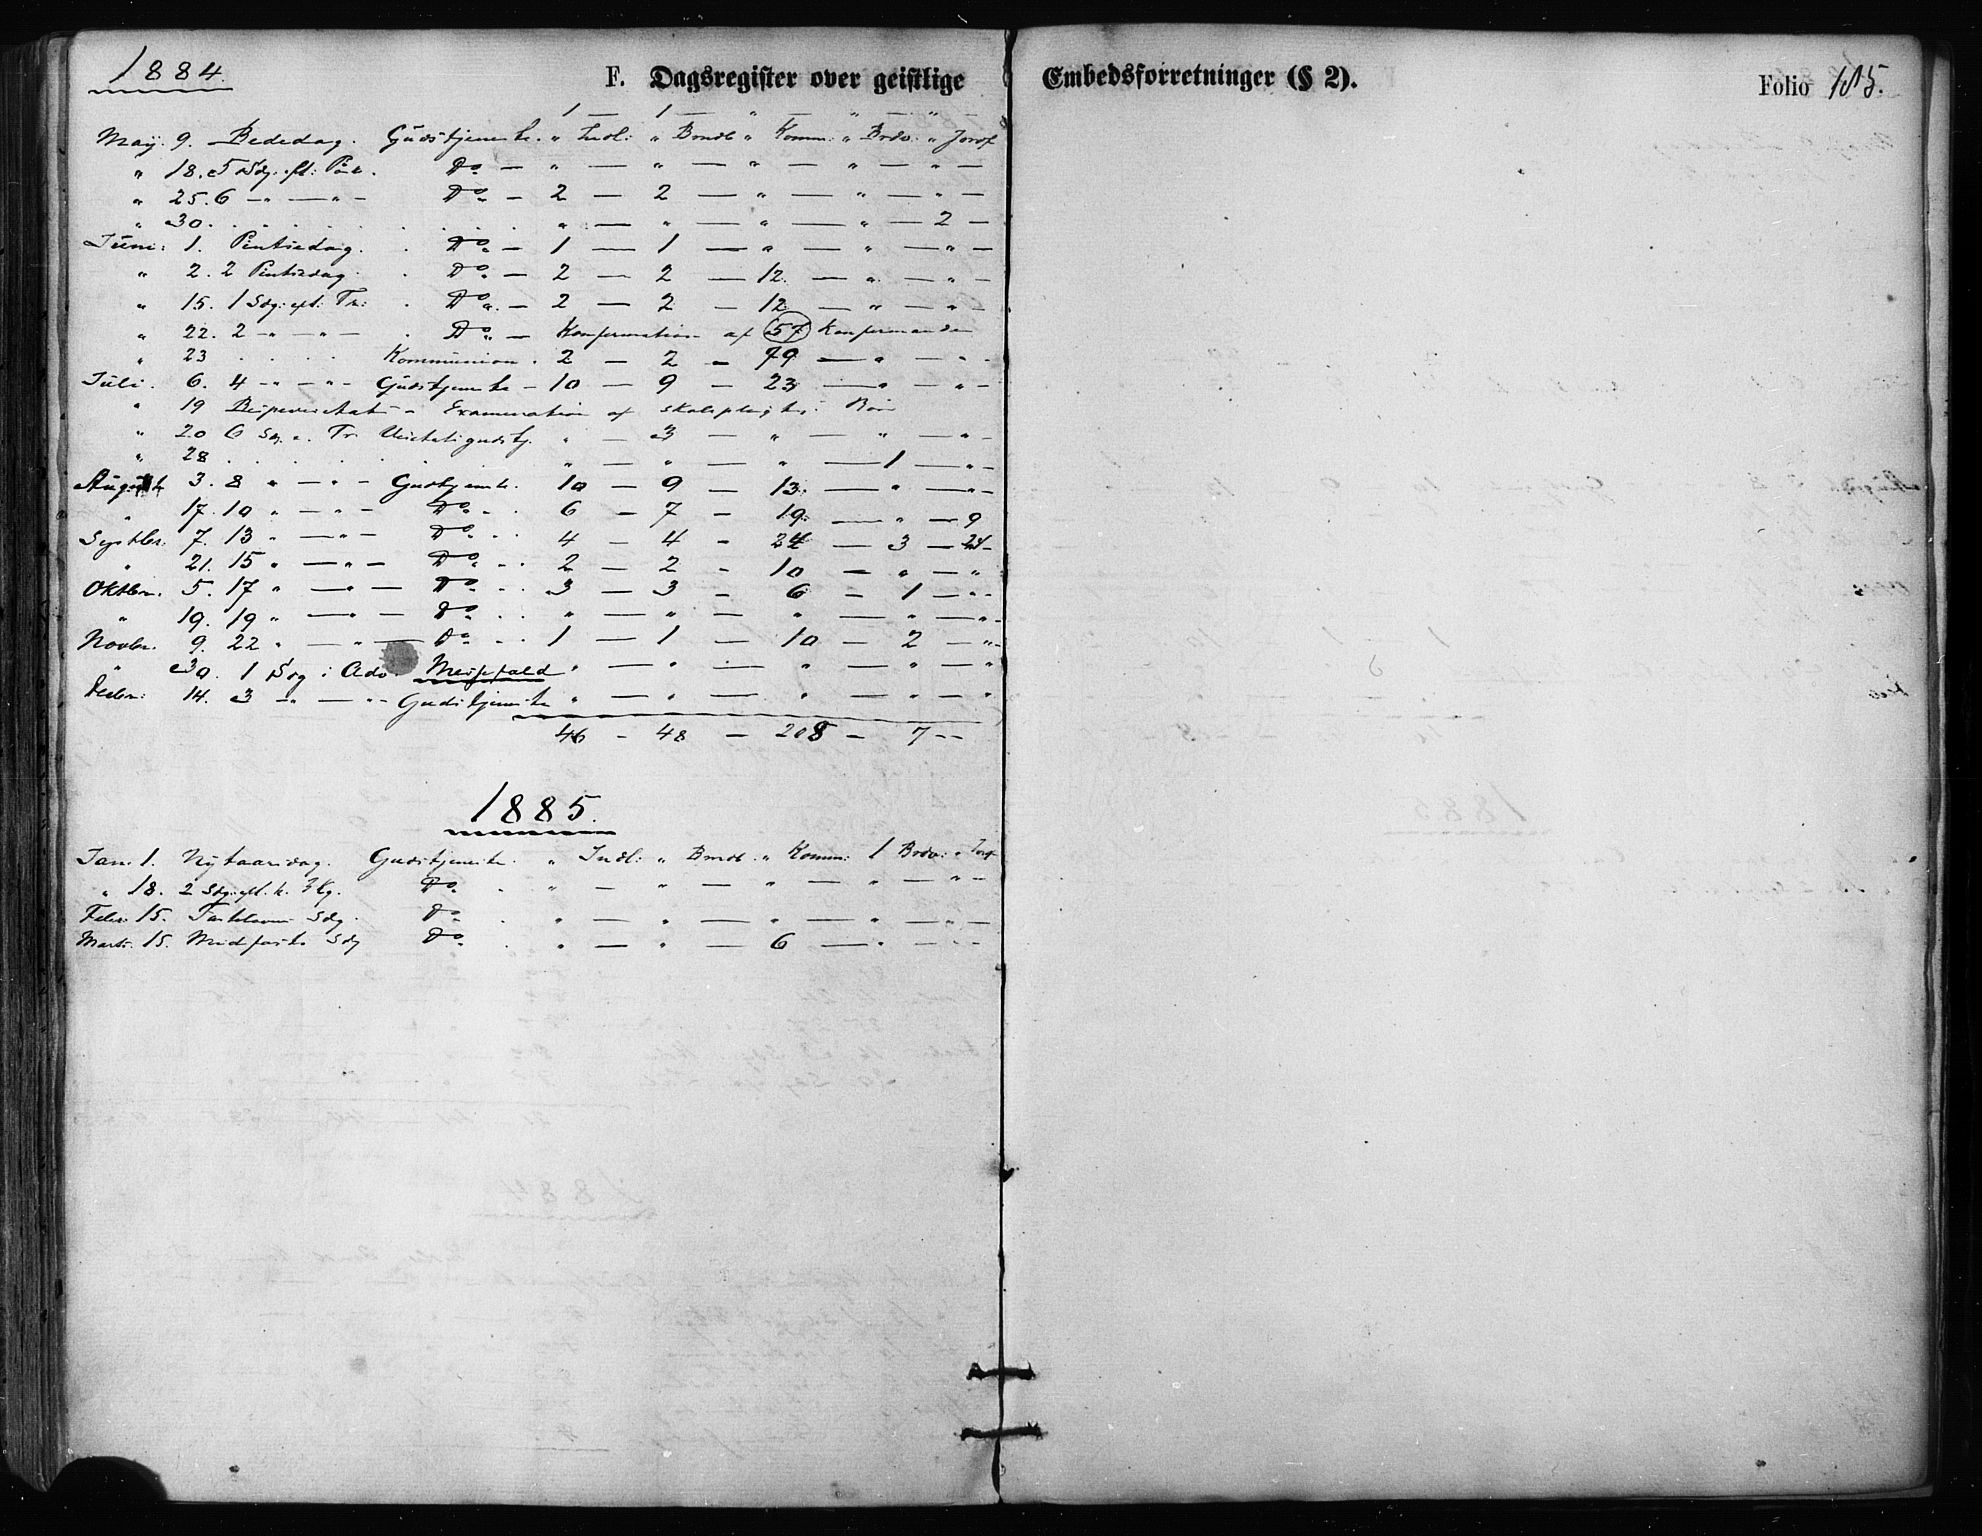 1884.
F. Dagsregister over geistlige Embedsforretninger (§ 2).
Folio 185.
1 — 1 — " — " — " —
May. 9. Bededag. Gudstjeneste. " Indl: " Brudb " Komm: " Brdv: " Jordf
" 18. 5 Sdg. eft: Paa. Do — " — " — " — " — " —
" 25. 6 — " — " — Do — 2 — 2 — " — " — " —
" 30. . . . . . . " — " — " — " — 2 —
Juni: 1. Pintsedag. . Do — 1 — 1 — " — " — " —
" 2. 2 Pintsedag. . Do — 2 — 2 — 12. — " — " —
" 15. 1 Sdg: eft: Tr: . Do — 2 — 2 — 12 — " — " —
" 22. 2 — " — " — . Do — Konfirmation af 57 Konfirmander
" 23 . . . . Kommunion. 2 — 2 — 79 — " — " —
Juli. 6. 4 — " — " — Gudstjeneste — 10 — 9 — 23 — " — " —
" 19 Bispevisitats — Examination af skolepligtige Børn
" 20 6 Sdg. e. Tr. Visitatsgudstj. " — 3 — " — " — " —
" 28 . . . . . " — " — " — 1 — " —
August 3. 8 " — " — Gudstjeneste. 10 — 9 — 13. — " — " —
" 17. 10 " — " — Do . . 6 — 7 — 19. — " — 9
Septbr. 7. 13 " — " — Do . . 4 — 4 — 24 — 3 — 24 —
" 21. 15 " — " — Do . . 2 — 2 — 10 — " — "
Oktbr. 5. 17 " — " — Do . . 3 — 3 — 6 — 1 — " —
" 19. 19 " — " — Do . . " — " — " — " — " —
Novbr. 9. 22 " — " — Do . . 1 — 1 — 10 — 2 — " —
" 30. 1 Sdg i Adv. Messefald " — " — " — " — "
Decbr: 14. 3 — " — " — Gudstjeneste " — " — " — " — "
46 — 48 — 208 — 7 — —
1885.
Jan: 1. Nytaarsdag. Gudstjeneste. " Indl: " Brudb. " Komm: 1 Brdv: " Jordf
" 18. 2 Sdg. eft. h. 3 Kg. Do . " — " — " — " — " —
Febr. 15. Fastelavns Sdg. Do . " — " — " — " — " —
Marts. 15. Midfaste Sdg Do . " — " — 6 — " — " —